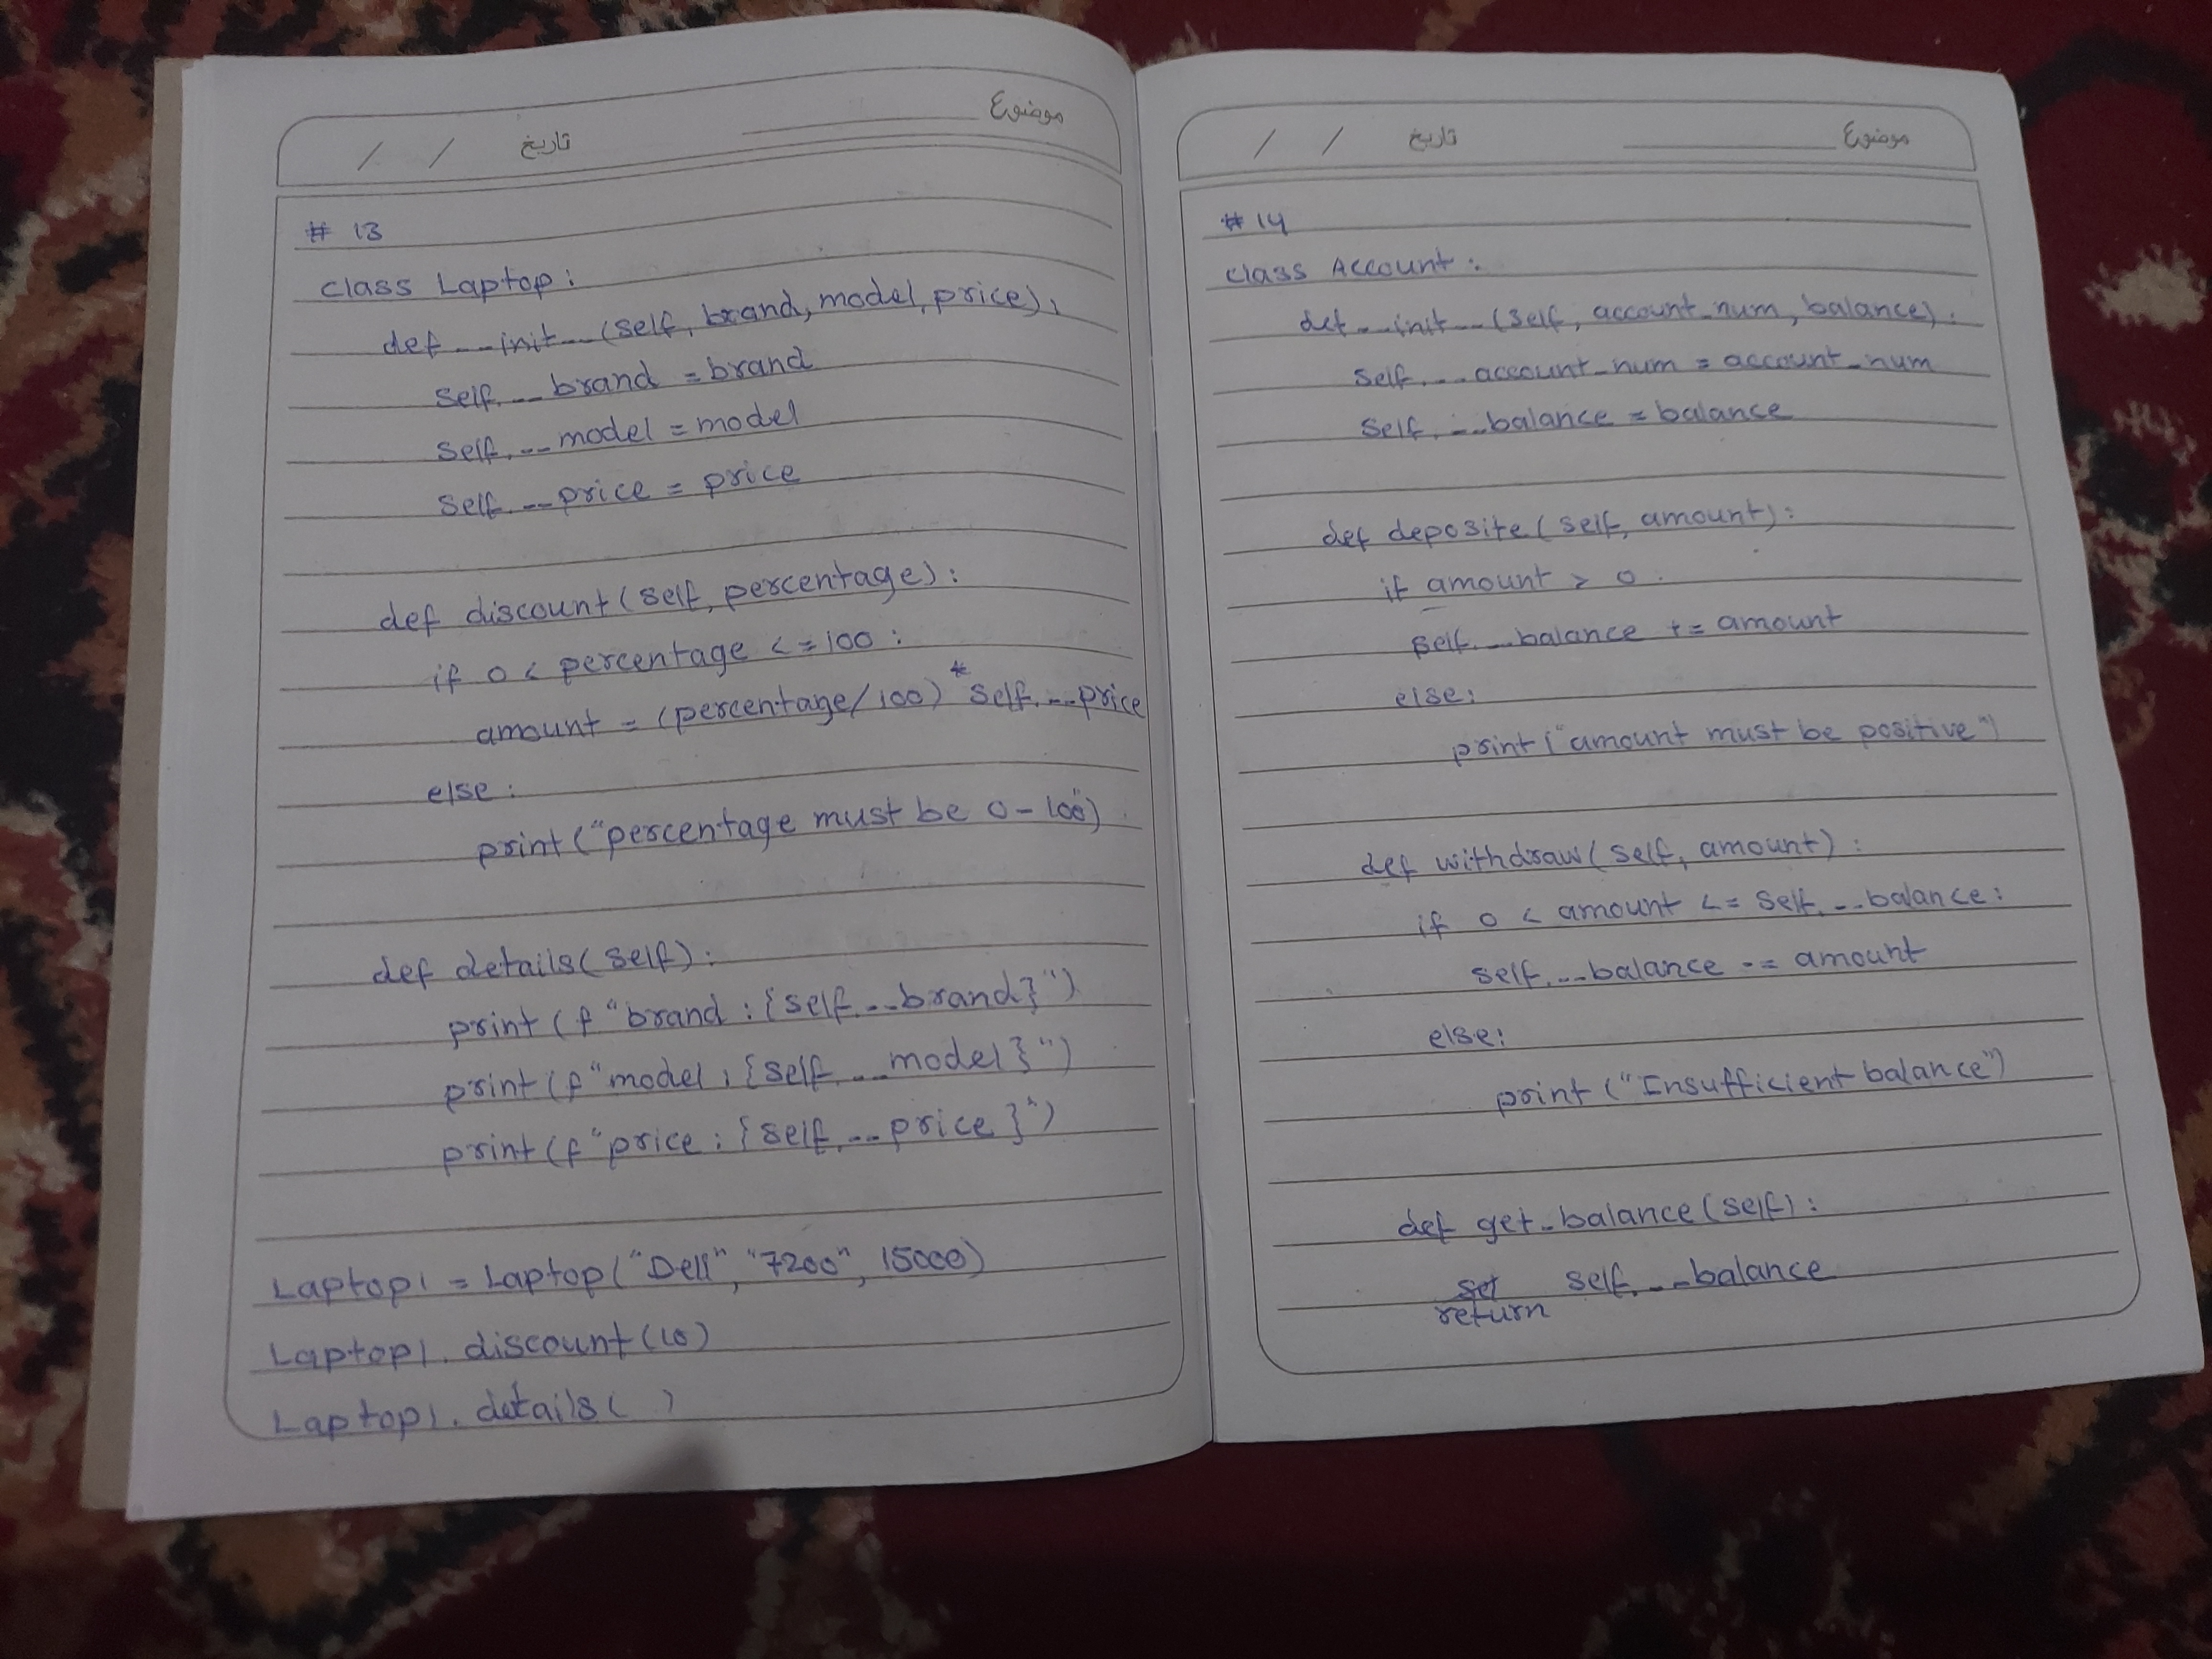 تاریخ / /
موضوع
# 13
class Laptop:
def __init__(self, brand, model, price):
self.__brand = brand
self.__model = model
self.__price = price
def discount(self, percentage):
if 0 < percentage <= 100:
amount = (percentage/100) * self.__price
else:
print("percentage must be 0-100")
def details(self):
print(f"brand : {self.__brand}")
print(f"model : {self.__model}")
print(f"price : {self.__price}")
Laptop1 = Laptop("Dell", "7200", 15000)
Laptop1.discount(10)
Laptop1.details( )
تاریخ / /
موضوع
# 14
class Account:
def __init__(self, account_num, balance):
self.__account_num = account_num
self.__balance = balance
def deposite(self, amount):
if amount > 0
self.__balance += amount
else:
print("amount must be positive")
def withdraw(self, amount):
if 0 < amount <= self.__balance:
self.__balance -= amount
else:
print("Insufficient balance")
def get_balance(self):
self.__balance
return